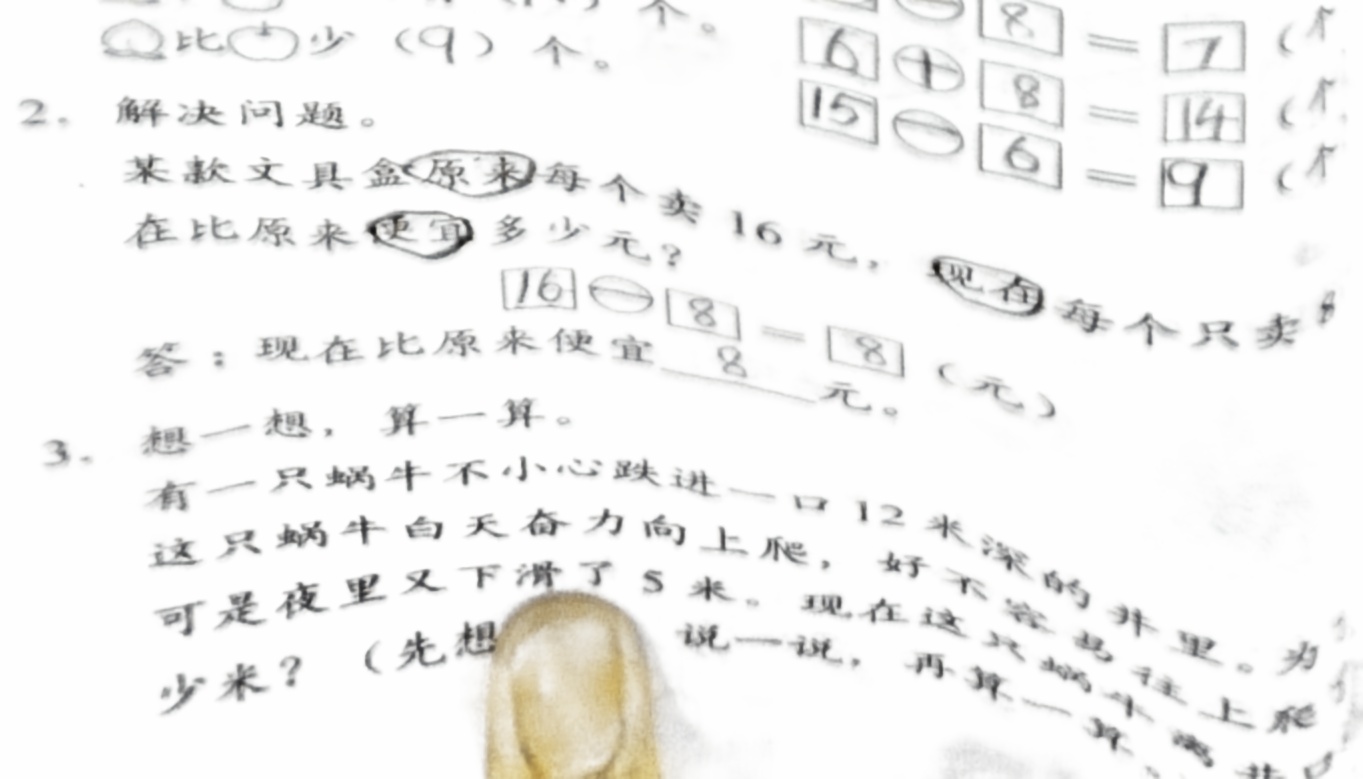 个。
比 少（9）个。
8 = 7（个
6 + 8 = 14（个
15 − 6 = 9（个
2. 解决问题。
某款文具盒原来每个卖16元，现在每个只卖8
在比原来便宜多少元？
16 − 8 = 8（元）
答：现在比原来便宜 8 元。
3. 想一想，算一算。
有一只蜗牛不小心跌进一口12米深的井里。为
这只蜗牛白天奋力向上爬，好不容易往上爬
可是夜里又下滑了5米。现在这只蜗牛离井口
少米？（先想 说一说，再算一算。